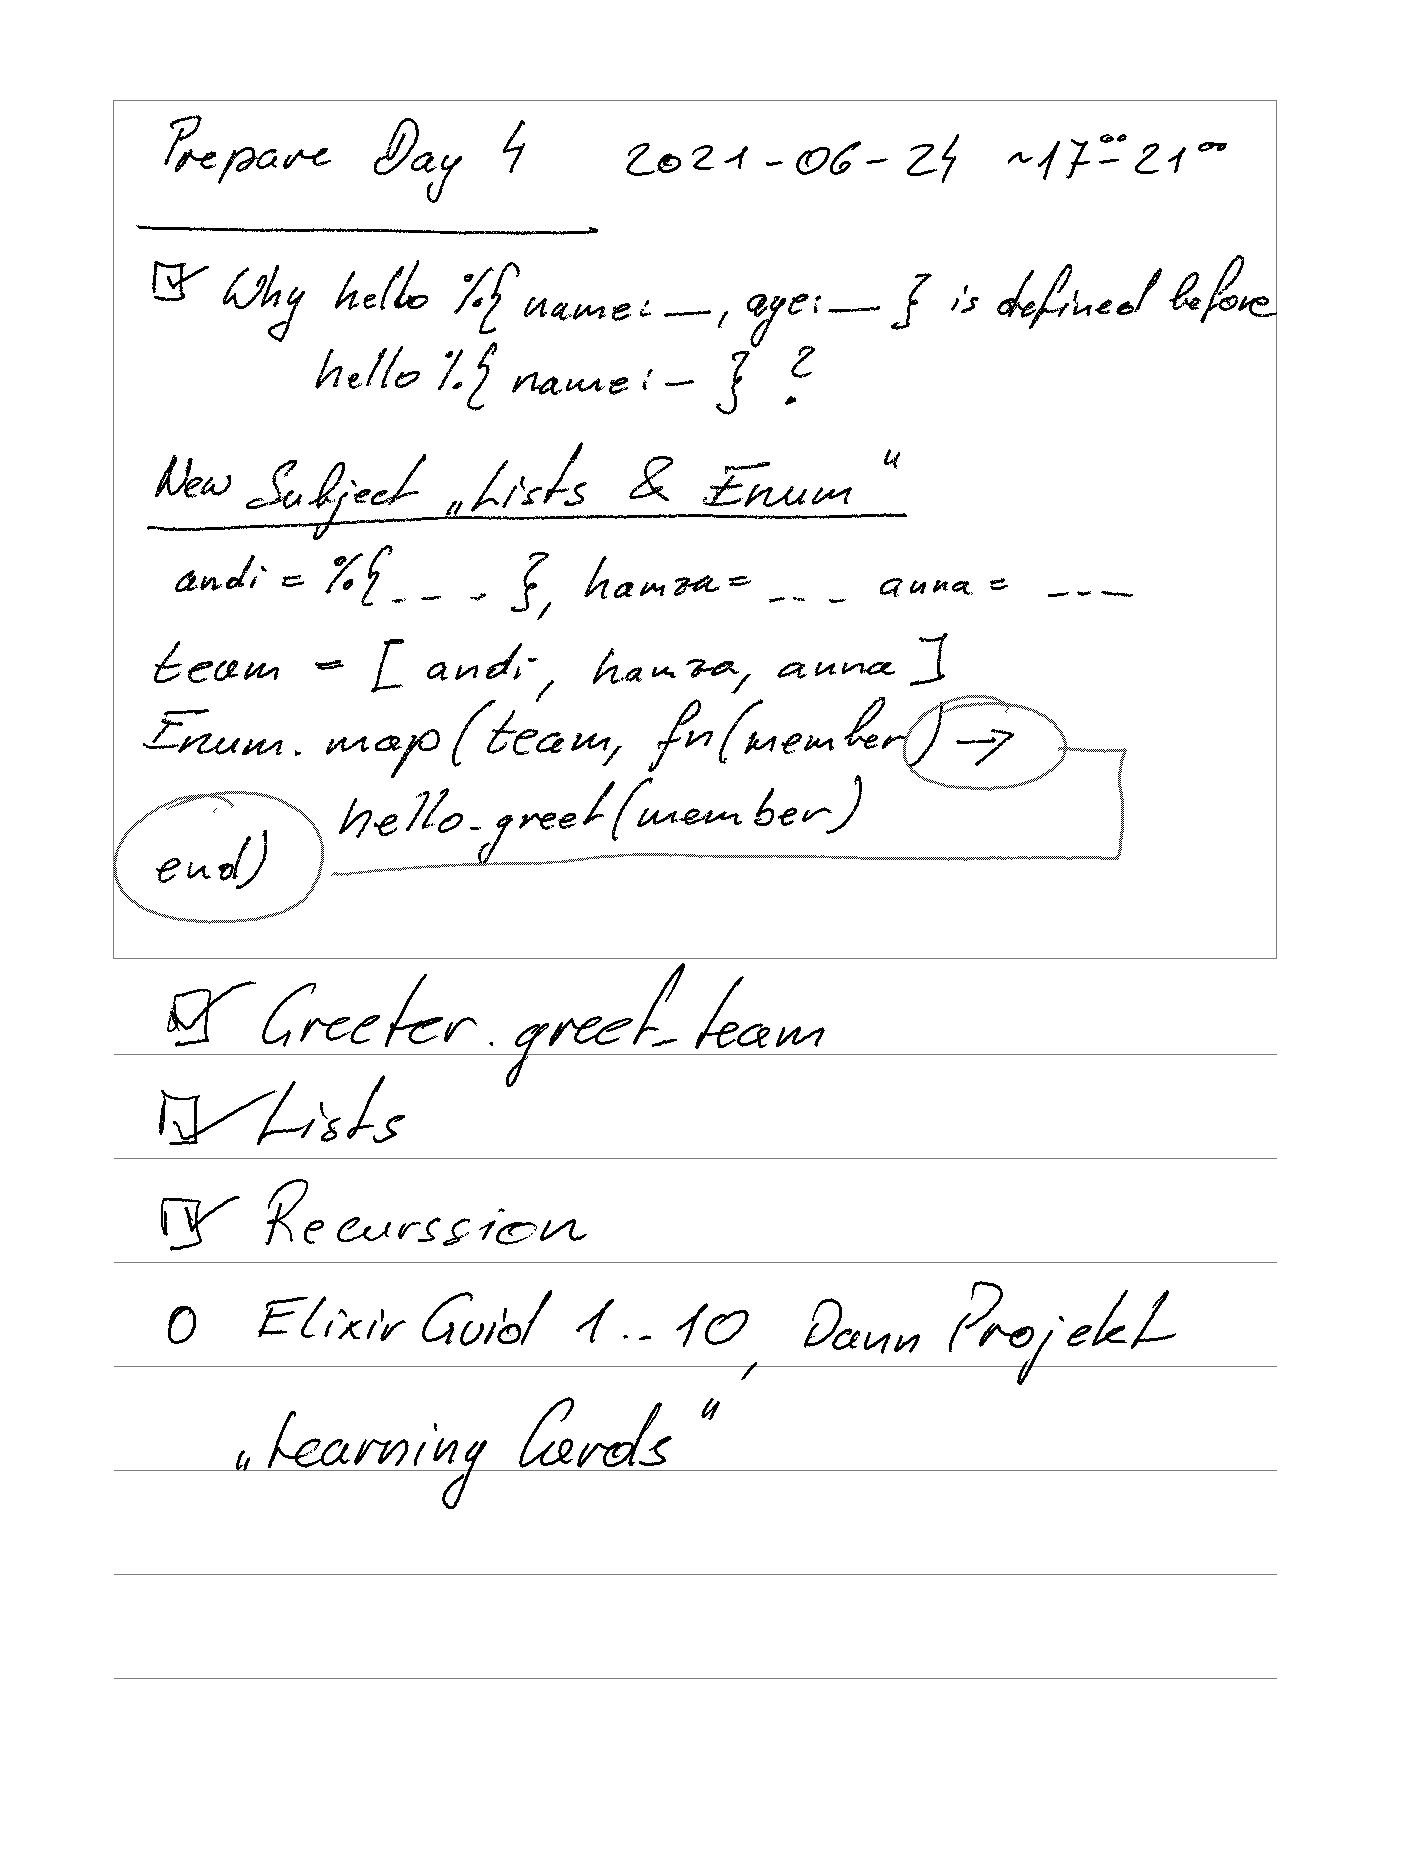 Prepare Day 4 2021-06-24 ~17⁰⁰-21⁰⁰
☑ Why hello %{ name: _, age: _ } is defined before
hello %{ name: _ } ?
New Subject „Lists & Enum“
andi = %{ _ _ _ }, hamza = _ _ _ anna = _ _ _
team = [ andi, hamza, anna ]
Enum.map(team, fn(member) →
hello_greet(member)
end)
☑ Greeter.greet_team
☑ Lists
☑ Recurssion
O Elixir Guid 1..10, Dann Projekt
„Learning Cards“